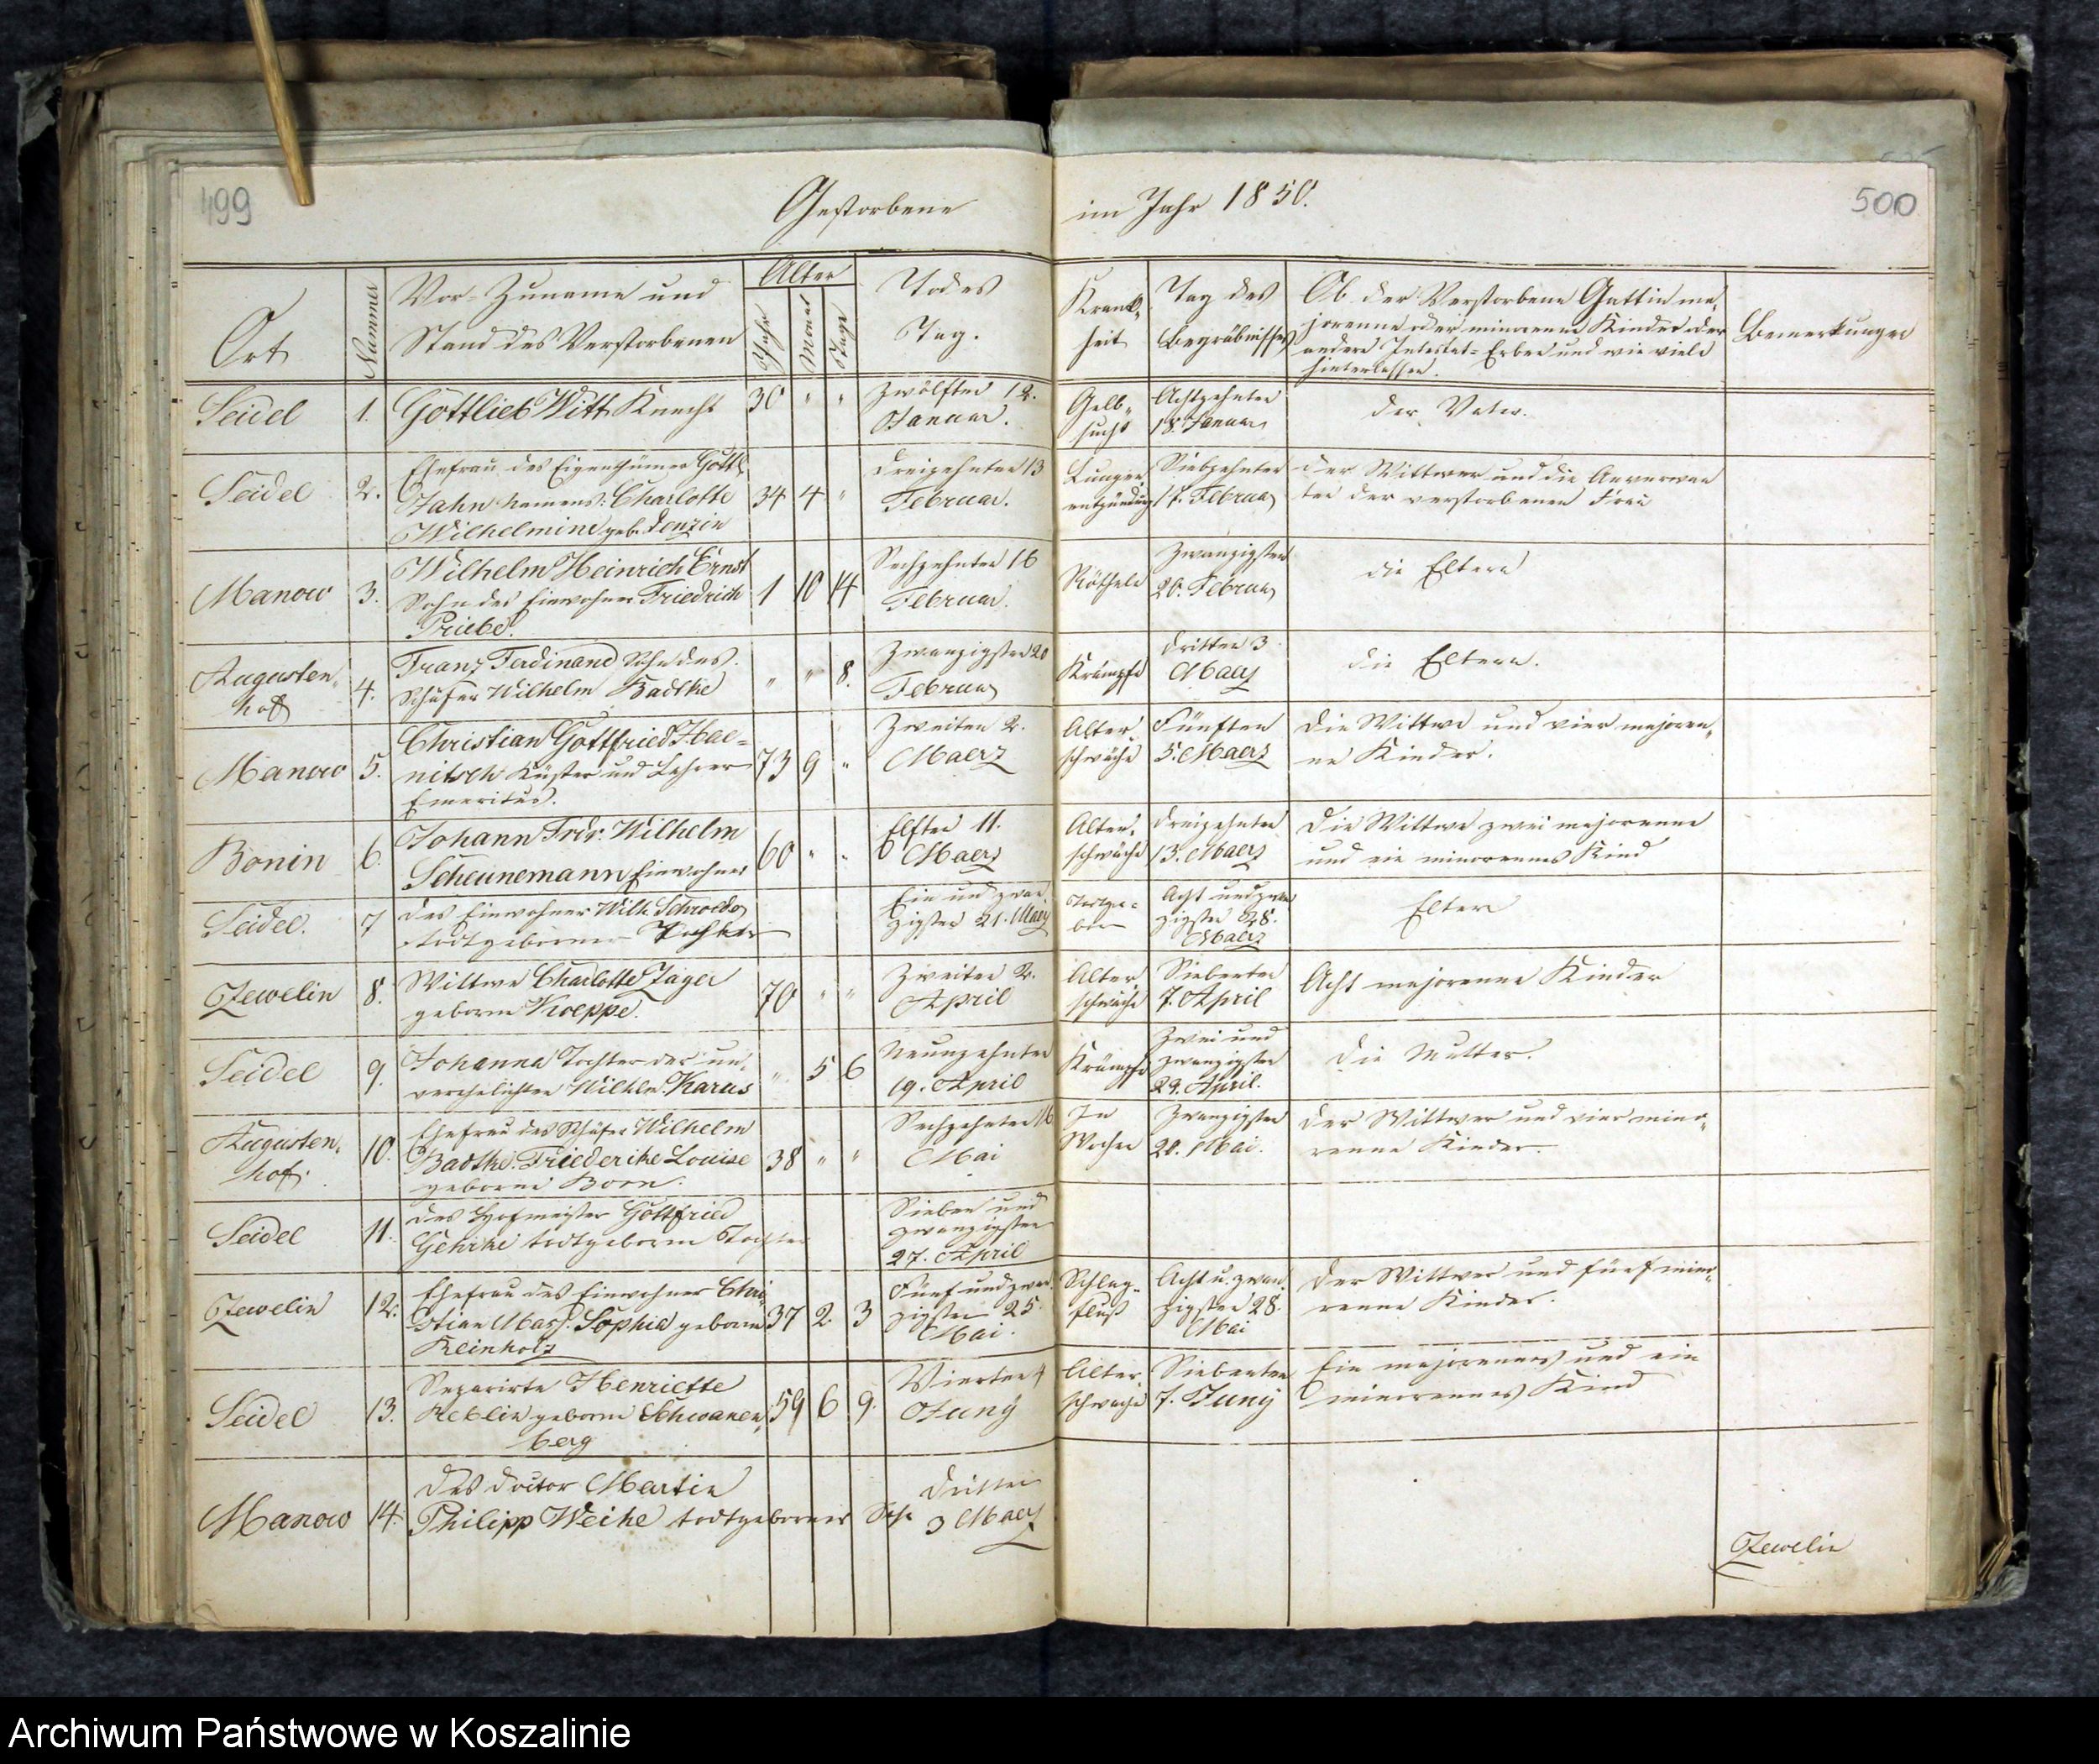 499
Gestorbene
im Jahr 1850.
500
Ort
Nummer
Vor- Zuname und
Stand des Verstorbenen
Alter
Jahr
Monat
Tage
Todes
Tag.
Krank-
heit
Tag des
Begräbnisses
Ob der Verstorbene Gattin ma-
jorenne oder minorenne Kinder oder
andere Intestat-Erben und wie viele
hinterlassen.
Bemerkungen
Seidel
1.
Gottlieb Witt Knecht
30 " "
Zwölften 12.
Januar.
Gelb-
sucht
Achtzehnten
18. Januar
der Vater.
Seidel
2.
Ehefrau des Eigenthümer Gottl.
Jahn namens: Charlotte
Wilhelmine geb. Denzin
34 4 "
Dreizehnten 13
Februar.
Lungen
entzündung
Siebzehnten
17. Februar
der Wittwer und die Anverwan
ten der verstorbenen Frau
Manow
3.
Wilhelm Heinrich Ernst
Sohn des Einwohner Friedrich
Priebe.
1 10 14
Sechzehnten 16
Februar.
Rötheln
Zwanzigsten
20. Februar
die Eltern
Augusten-
hof
4.
Franz Ferdinand Sohn des
Schäfer Wilhelm Badtke
" " 8.
Zwanzigsten 20
Februar
Krämpfe
dritten 3
Maerz
die Eltern.
Manow
5.
Christian Gottfried Hae-
nitsch Küster und Lehrer
Emeritus.
73 9 "
Zweiten 2.
Maerz
Alter-
schwäche
Fünften
5. Maerz
Die Wittwe und vier majoren-
ne Kinder.
Bonin
6.
Johann Frdr. Wilhelm
Scheunemann Einwohner
60 " "
Elften 11.
Maerz
Alters-
schwäche
Dreizehnten
13. Maerz
Die Wittwe zwei majorenne
und ein minorennes Kind
Seidel.
7
des Einwohner Wilh. Schroeder
todtgeborner
Ein und zwan-
zigsten 21. Maerz
Todtge-
born
Acht und zwan
zigsten 28.
Maerz
Eltern
Zewelin
8.
Wittwe Charlotte Jager
geborne Koeppe.
70 " "
Zweiten 2.
April
Alter-
schwäche
Siebenten
7. April
Acht majorenne Kinder
Seidel
9.
Johanna Tochter der un-
verehelichten Wilhln. Karus
" 5 6
Neunzehnten
19. April
Krämpfe
Zwei und
zwanzigsten
April.
Die Mutter.
Augusten-
hof.
10.
Ehefrau des Schäfer Wilhelm
Badtke: Friederike Louise
geborne Born.
38 " "
Sechzehnten 16
Mai
In
Wochen
Zwanzigsten
20. Mai.
Der Wittwer und vier mino-
renne Kinder.
Seidel
11.
des Hofmeister Gottfried
Gehrke todtgeborne Tochter
Sieben und
zwanzigsten
27. April
Zewelin
12.
Ehefrau des Einwohner Chri-
stian Mass. Sophie geborne
Reinholz
37 2 3
Fünf und zwan-
zigsten 25.
Mai.
Schlag-
fluß
Acht u. zwan-
zigsten 28.
Mai
Der Wittwer und fünf mino-
renne Kinder.
Seidel
13.
Separirte Henriette
Reblin geborne Schwanen-
berg
59 6 9.
Vierten 4
Juny
Alter-
schwäche
Siebenten
7. Juny
Ein majorennes und ein
minorennes Kind
Manow
14.
Des Doctor Martin
Philipp Weihe todtgeborner Sohn
dritten
3 Maerz
Zewelin
Archiwum Państwowe w Koszalinie